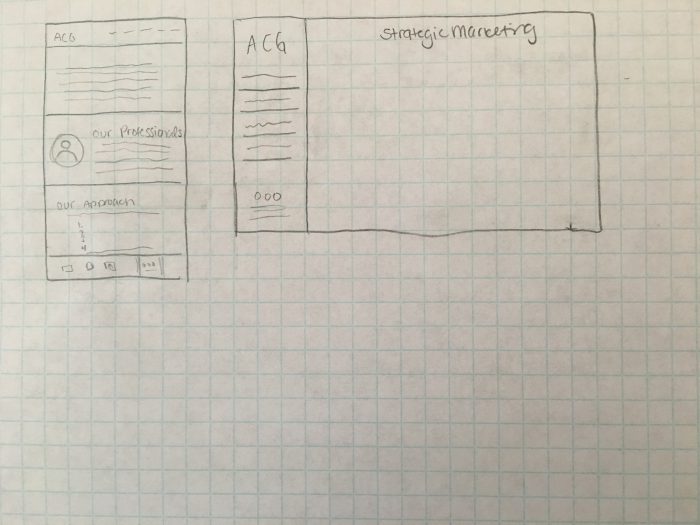 ACG
our Professionals
our Approach
1.
2
3
4
ACG
Strategic Marketing